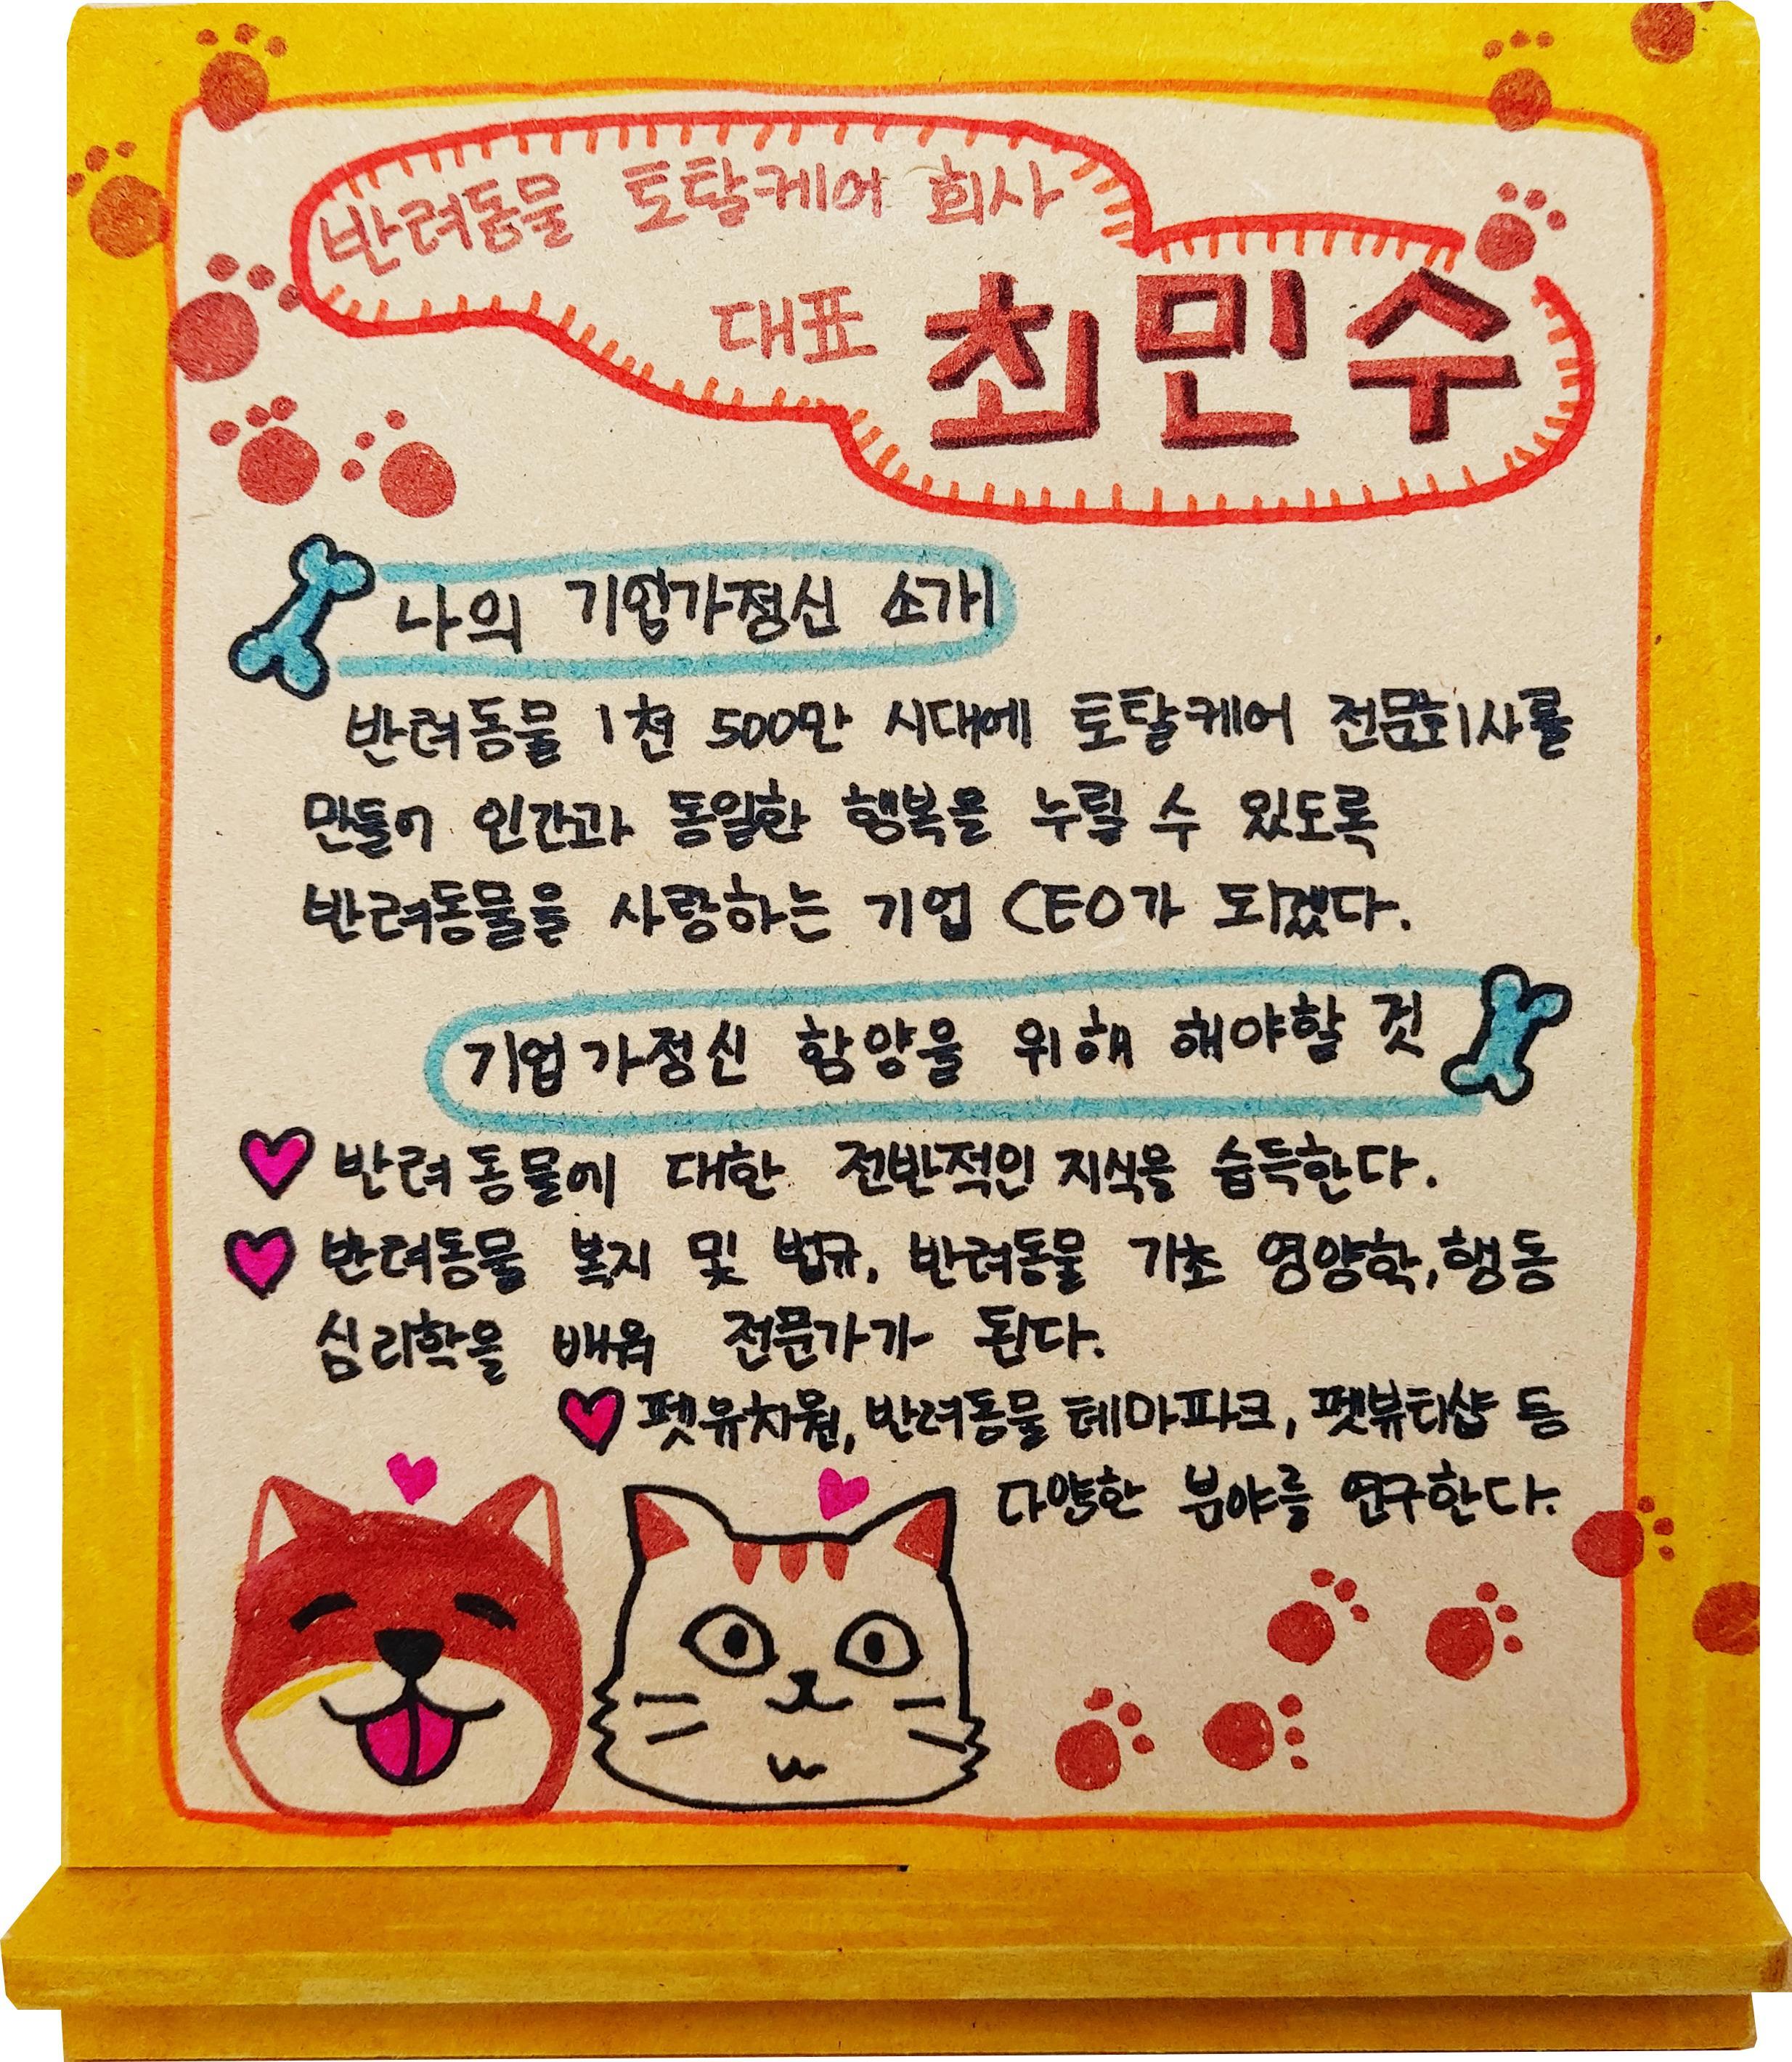 반려동물 토탈케어 회사
대표 최민수
나의 기업가정신 소개
반려동물 1천 500만 시대에 토탈케어 전문회사를
만들어 인간과 동일한 행복을 누릴 수 있도록
반려동물을 사랑하는 기업 CEO가 되겠다.
기업가정신 함양을 위해 해야할 것
반려동물에 대한 전반적인 지식을 습득한다.
반려동물 복지 및 법규, 반려동물 기초 영양학, 행동
심리학을 배워 전문가가 된다.
펫유치원, 반려동물 테마파크, 펫뷰티샵 등
다양한 분야를 연구한다.